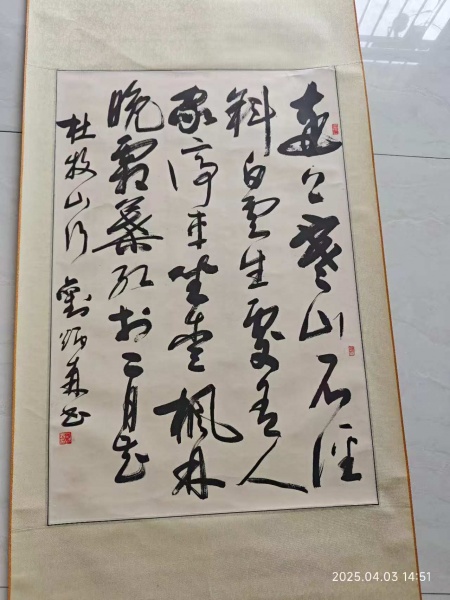 远上寒山石径
斜白云生处有人
家停车坐爱枫林
晚霜叶红于二月花
杜牧山行 刘炳森书
2025.04.03 14:51